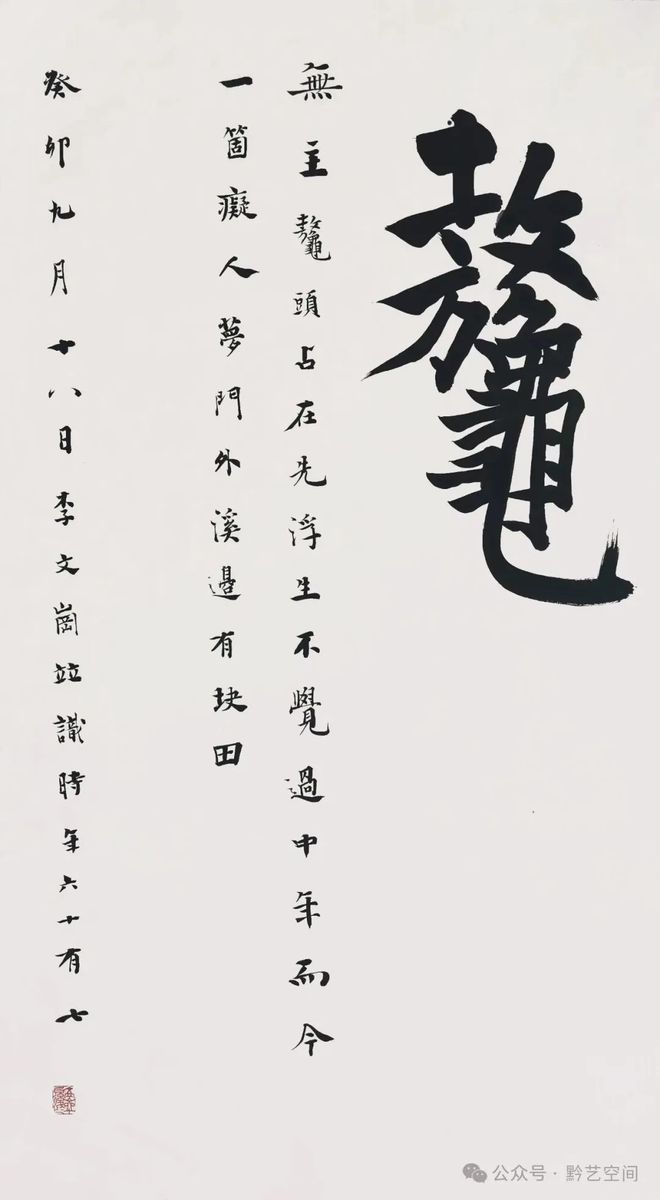 鼇
無主鼇頭占在先浮生不覺過中年而今
一箇癡人夢門外溪邊有块田
癸卯九月十八日李文崗竝識時年六十有七
公众号·黔艺空间